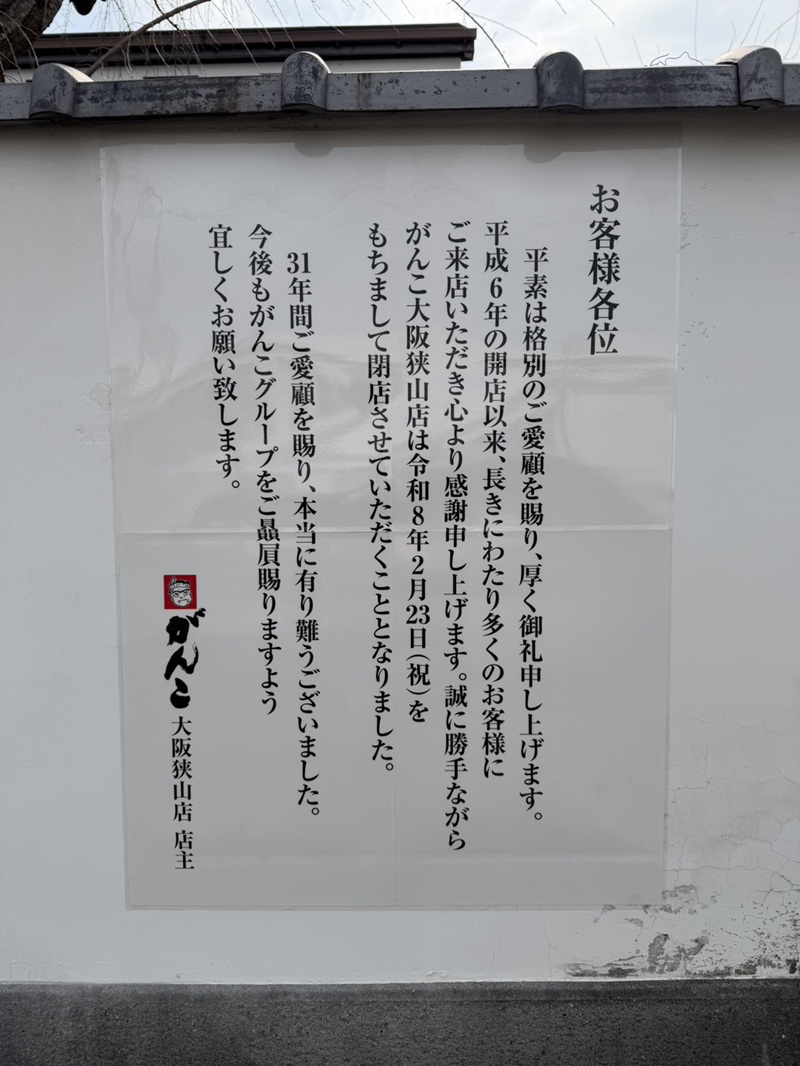 お客様各位
平素は格別のご愛顧を賜り、厚く御礼申し上げます。
平成6年の開店以来、長きにわたり多くのお客様に
ご来店いただき心より感謝申し上げます。誠に勝手ながら
がんこ大阪狭山店は令和8年2月23日(祝)を
もちまして閉店させていただくこととなりました。
31年間ご愛顧を賜り、本当に有り難うございました。
今後もがんこグループをご贔屓賜りますよう
宜しくお願い致します。
がんこ 大阪狭山店 店主